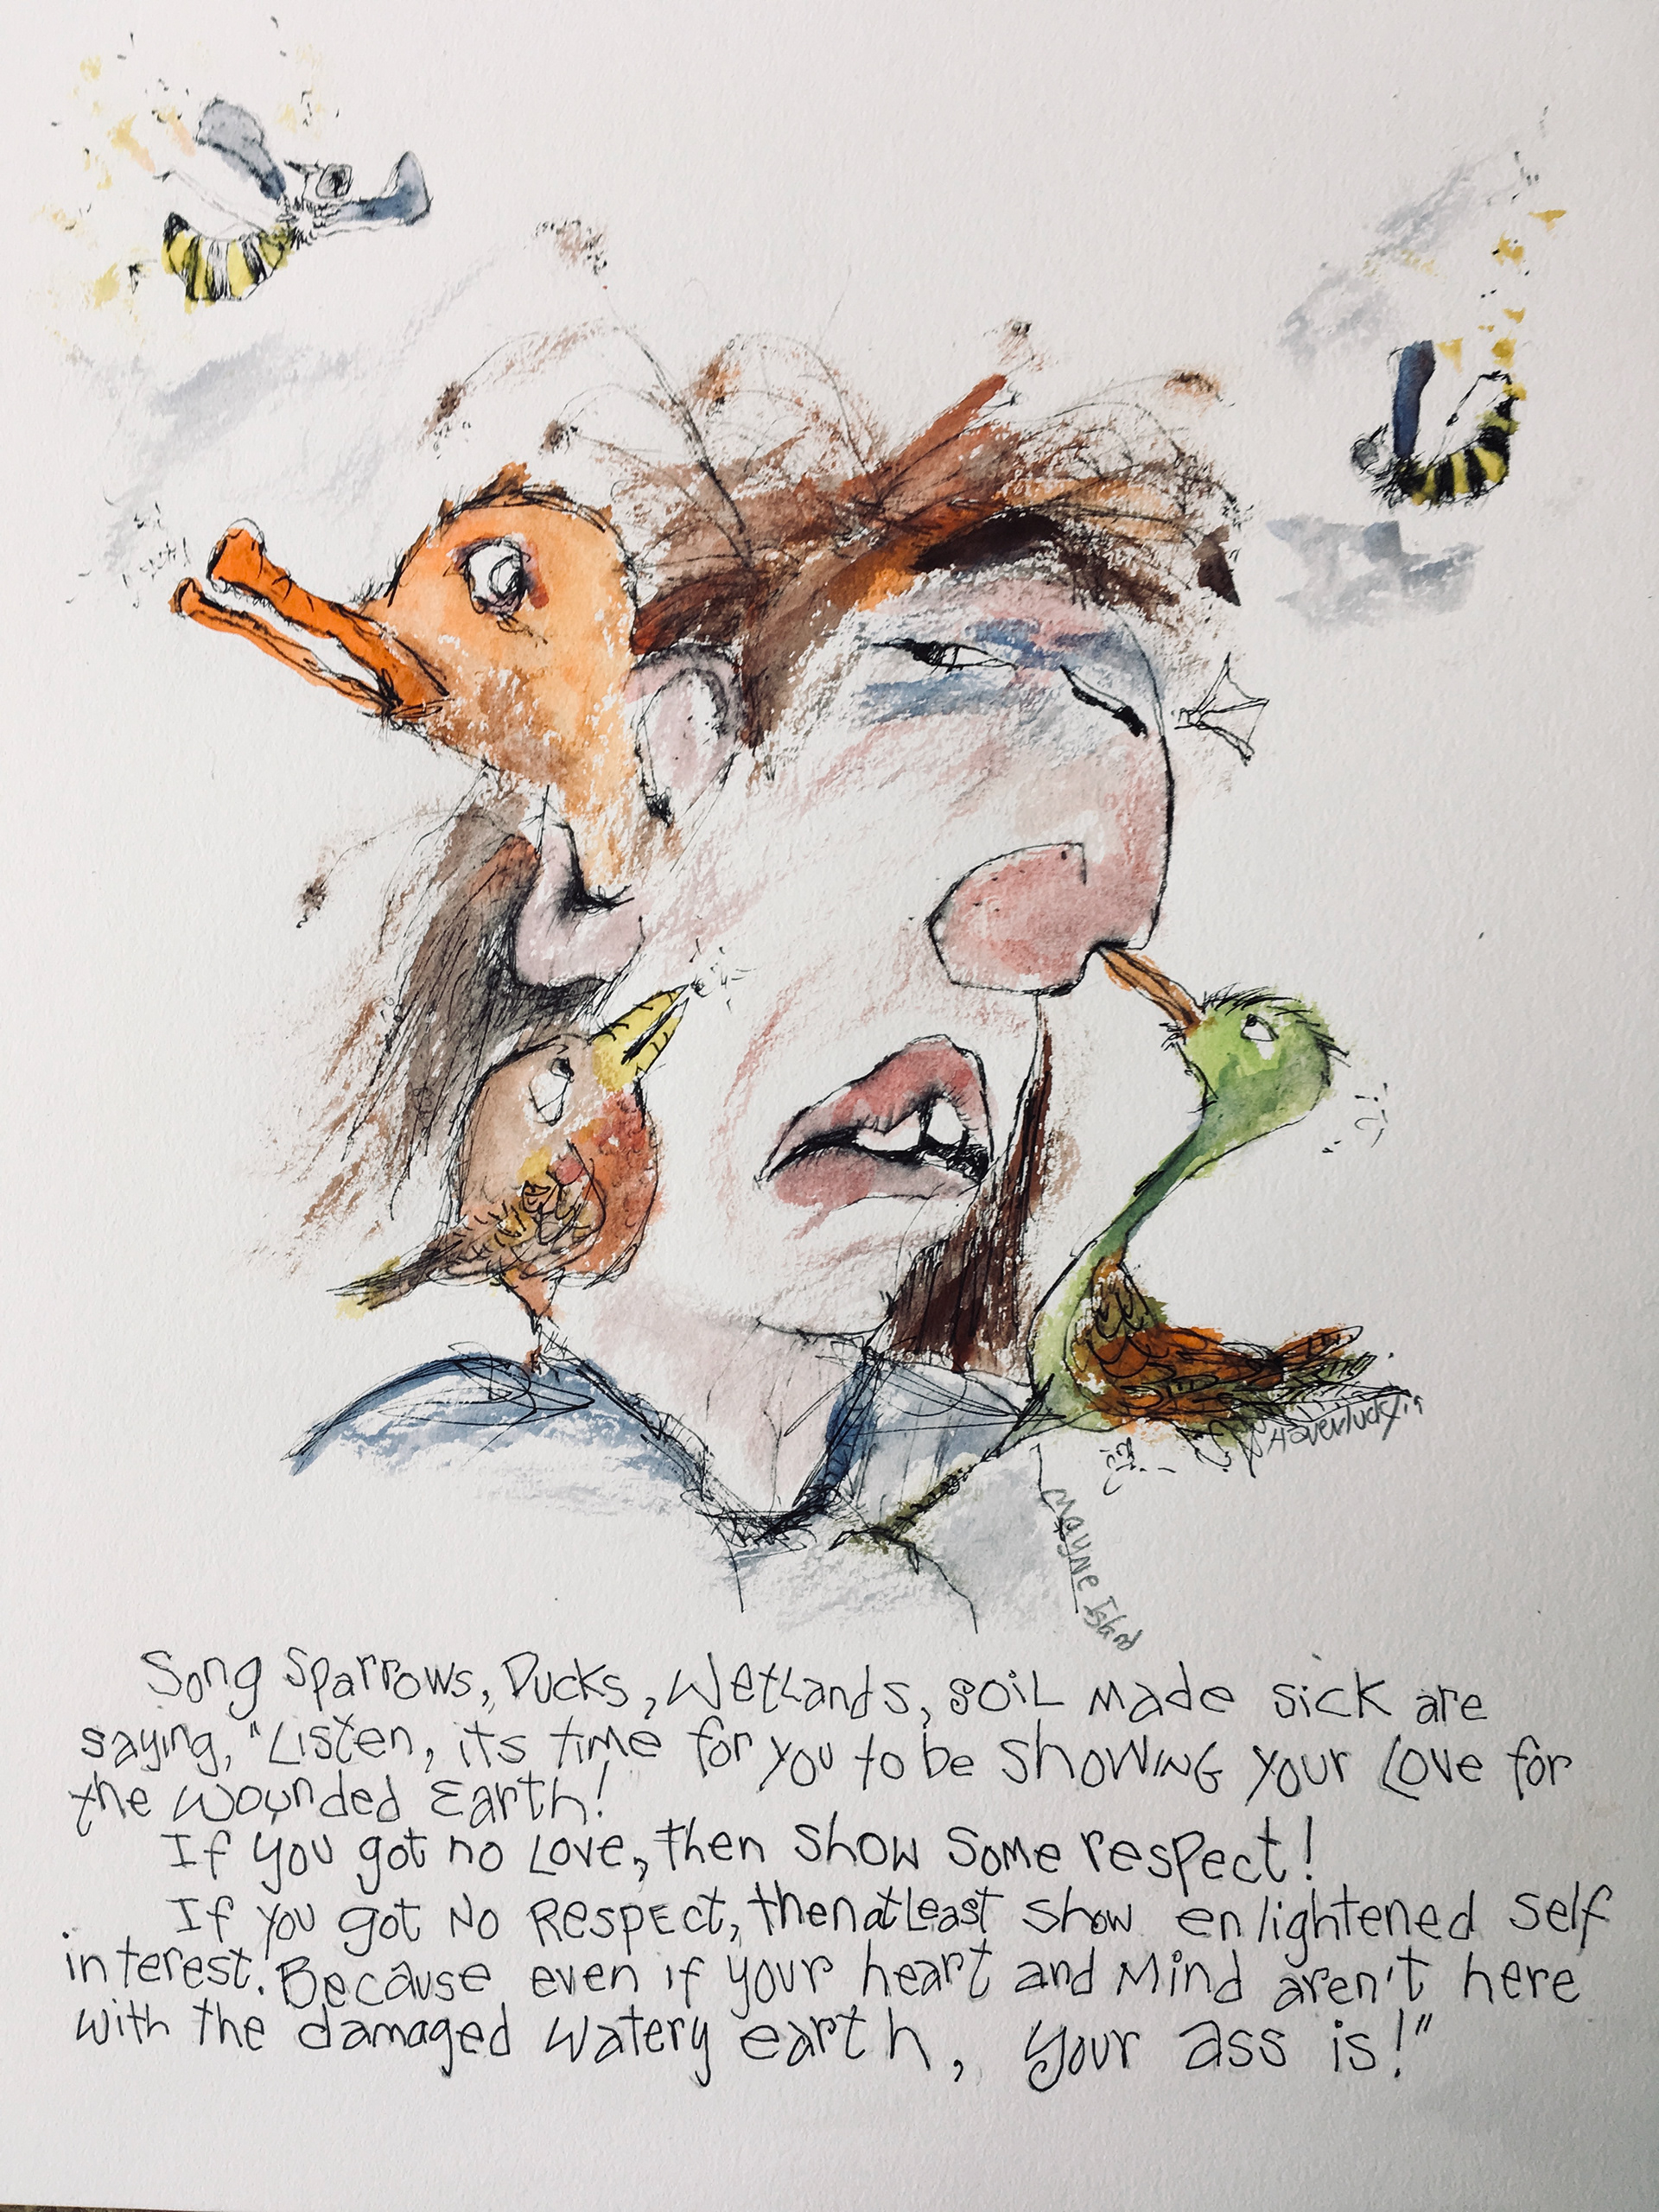 Haverluck '19
Mayne Island
Song Sparrows, Ducks, Wetlands, soil made sick are
saying, "Listen, its time for you to be showing your Love for
the wounded Earth!
If you got no Love, then show some respect!
If you got No Respect, then at Least show enlightened self
interest. Because even if your heart and mind aren't here
with the damaged watery earth, your ass is!"